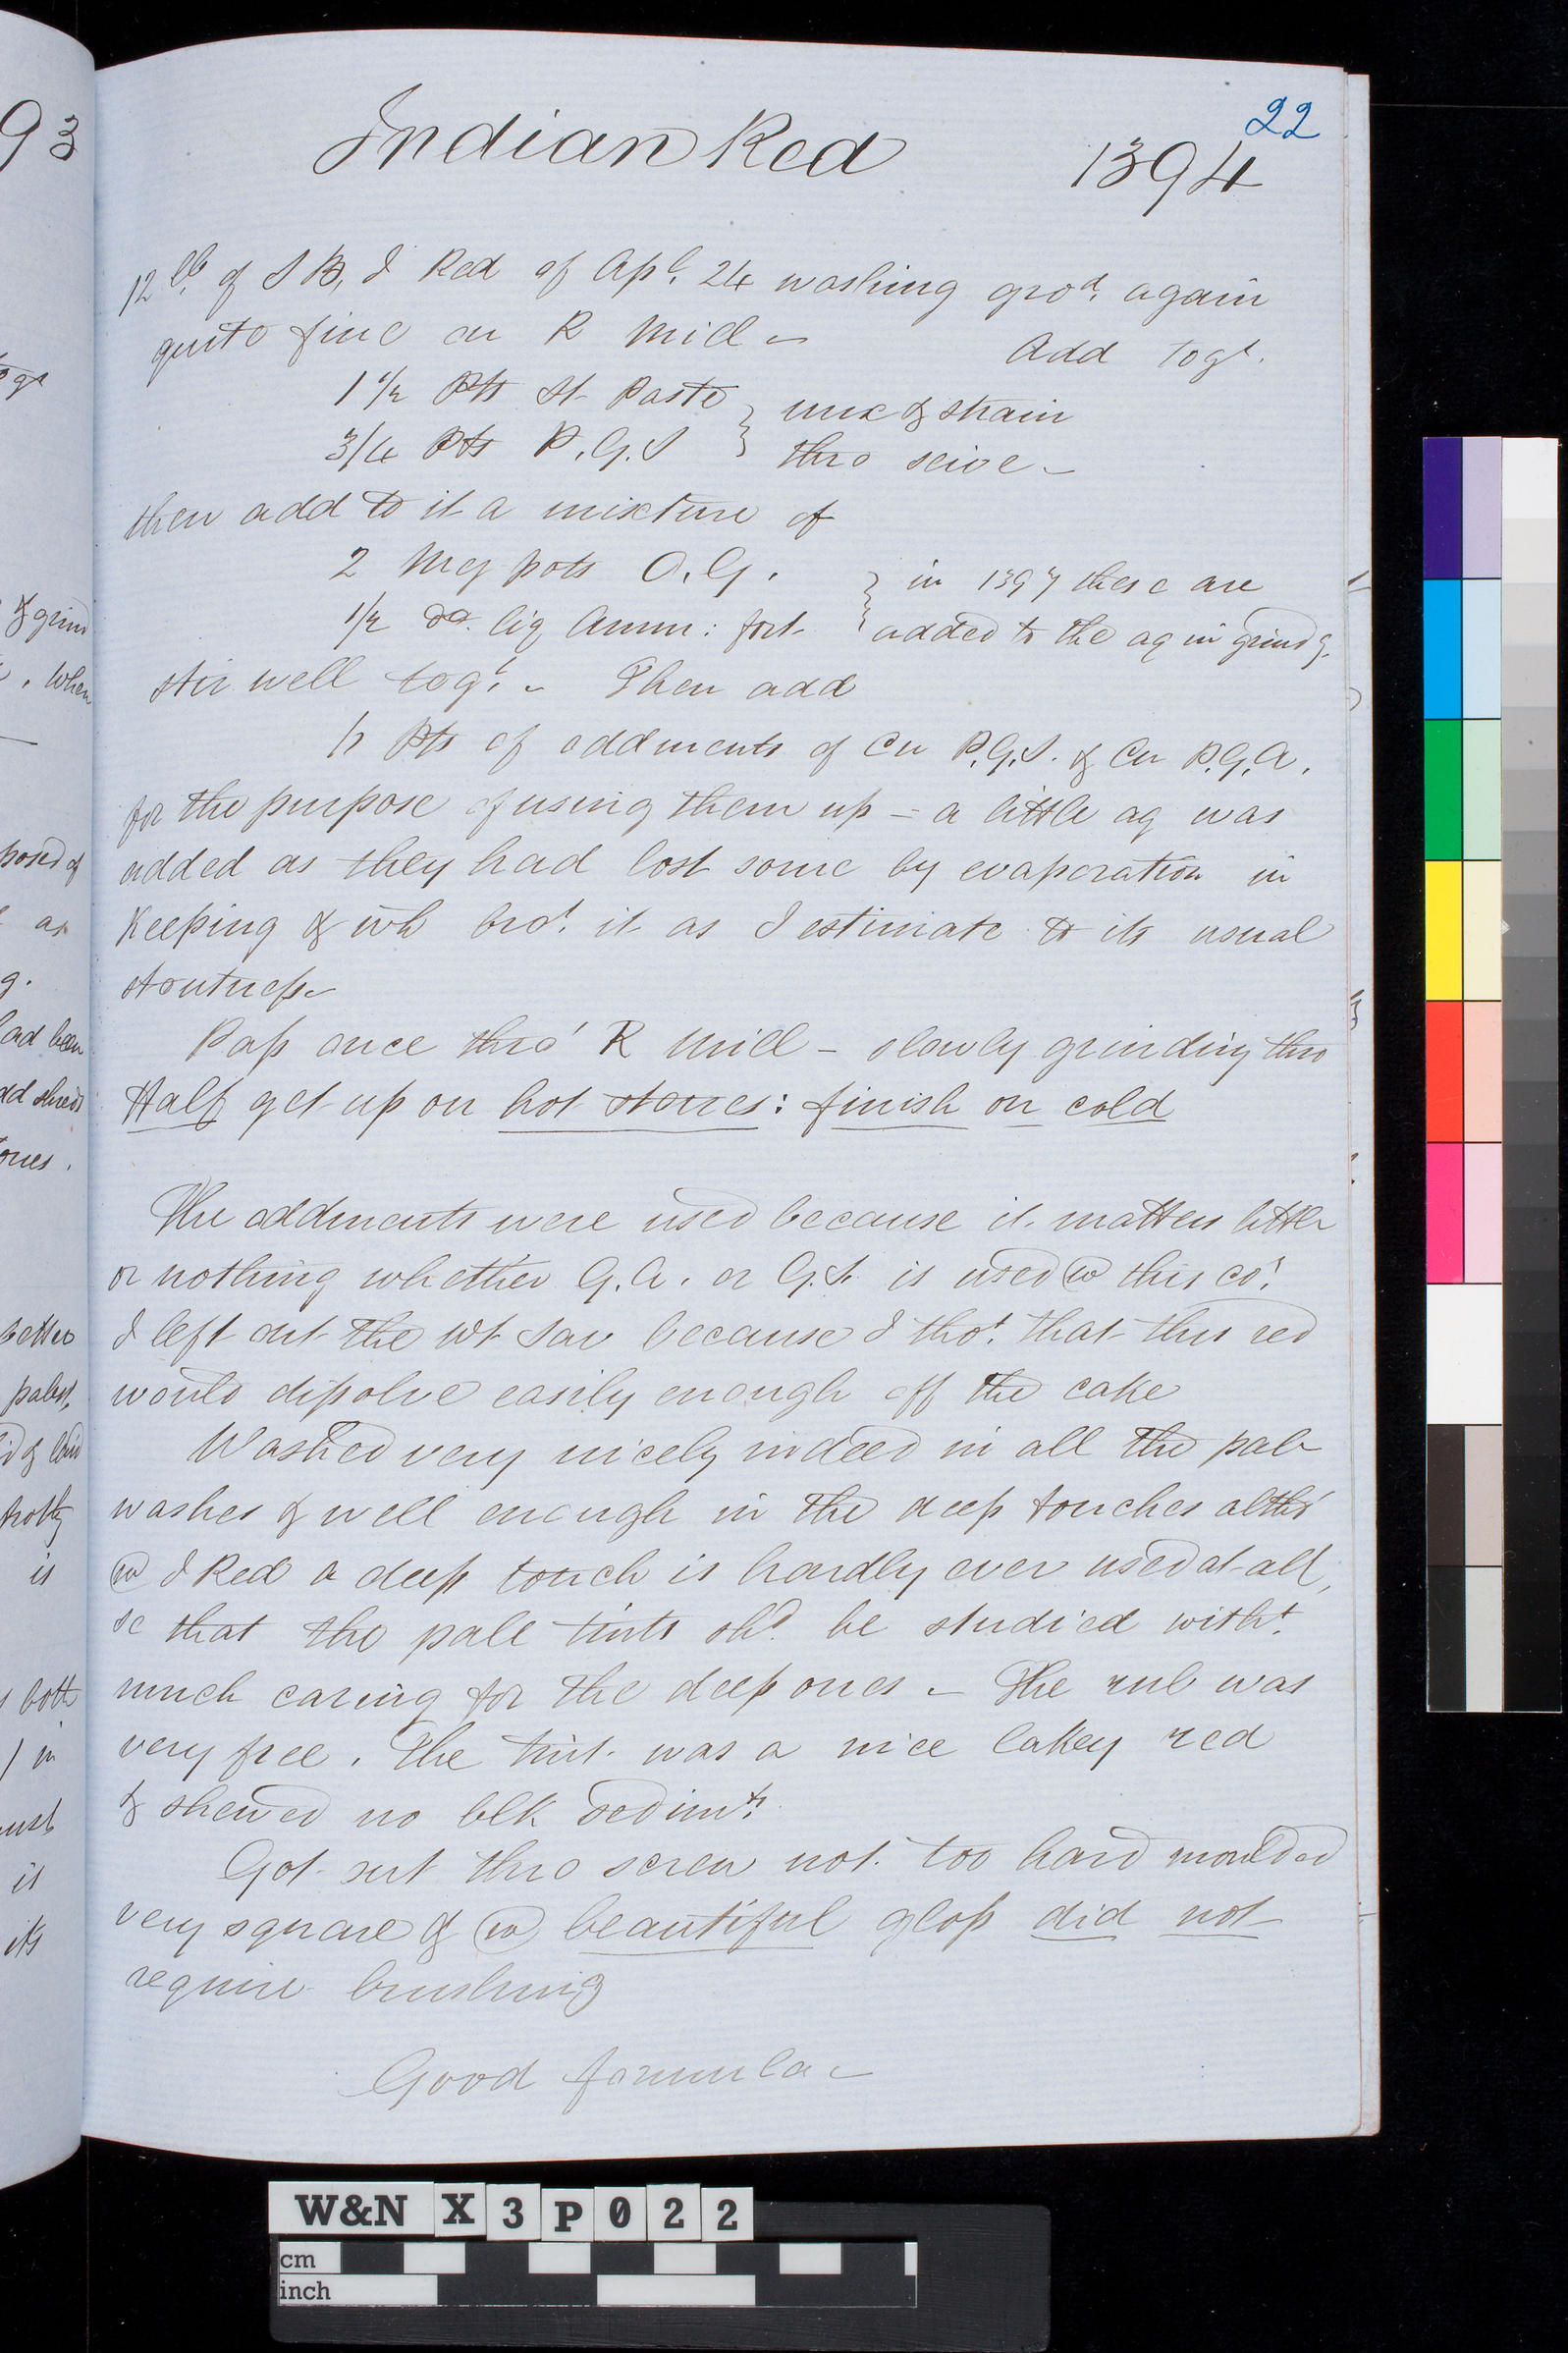 22
Indian Red 1394
12 lb. of S B, I Red of Apl. 24 washing grod. again
quite fine on R Mill – Add togr.
1 1/2 Pts St Paste } mix & strain
3/4 Pts P.G.S } thro seive –
then add to it a mixture of
2 Meg pots O.G. } in 1397 these are
1/2 do. liq Amm: fort } added to the aq in grindg.
stir well togr. – Then add
Pts of oddments of Cu P.G.S. & Cu P.G.A.
for the purpose of using them up – a little aq was
added as they had lost some by evaporation in
Keeping & wh brot. it as I estimate to its usual
stoutness –
Pass once thro' R Mill – slowly grinding thro
Half get up on hot stones: finish on cold
The oddments were used because it matters little
or nothing whether G.A. or G.S. is used w this cor.
I left out the Wt Sav because I thot. that this red
would dissolve easily enough off the cake
Washed very nicely indeed in all the pale
washes & well enough in the deep touches altho'
w I Red a deep touch is hardly ever used at all,
so that the pale tints shd. be studied witht.
much caring for the deep ones – The rub was
very free. The tint was a nice lakey red
& shewed no blk sedimt.
Got out thro screw not too hard moulded
very square & w beautiful gloss did not
require brushing
Good formula –
93
& grind
, When
posed of
as
g.
had been
ones.
better
is
both
in
it
its
W&N X 3 P 0 2 2
cm
inch